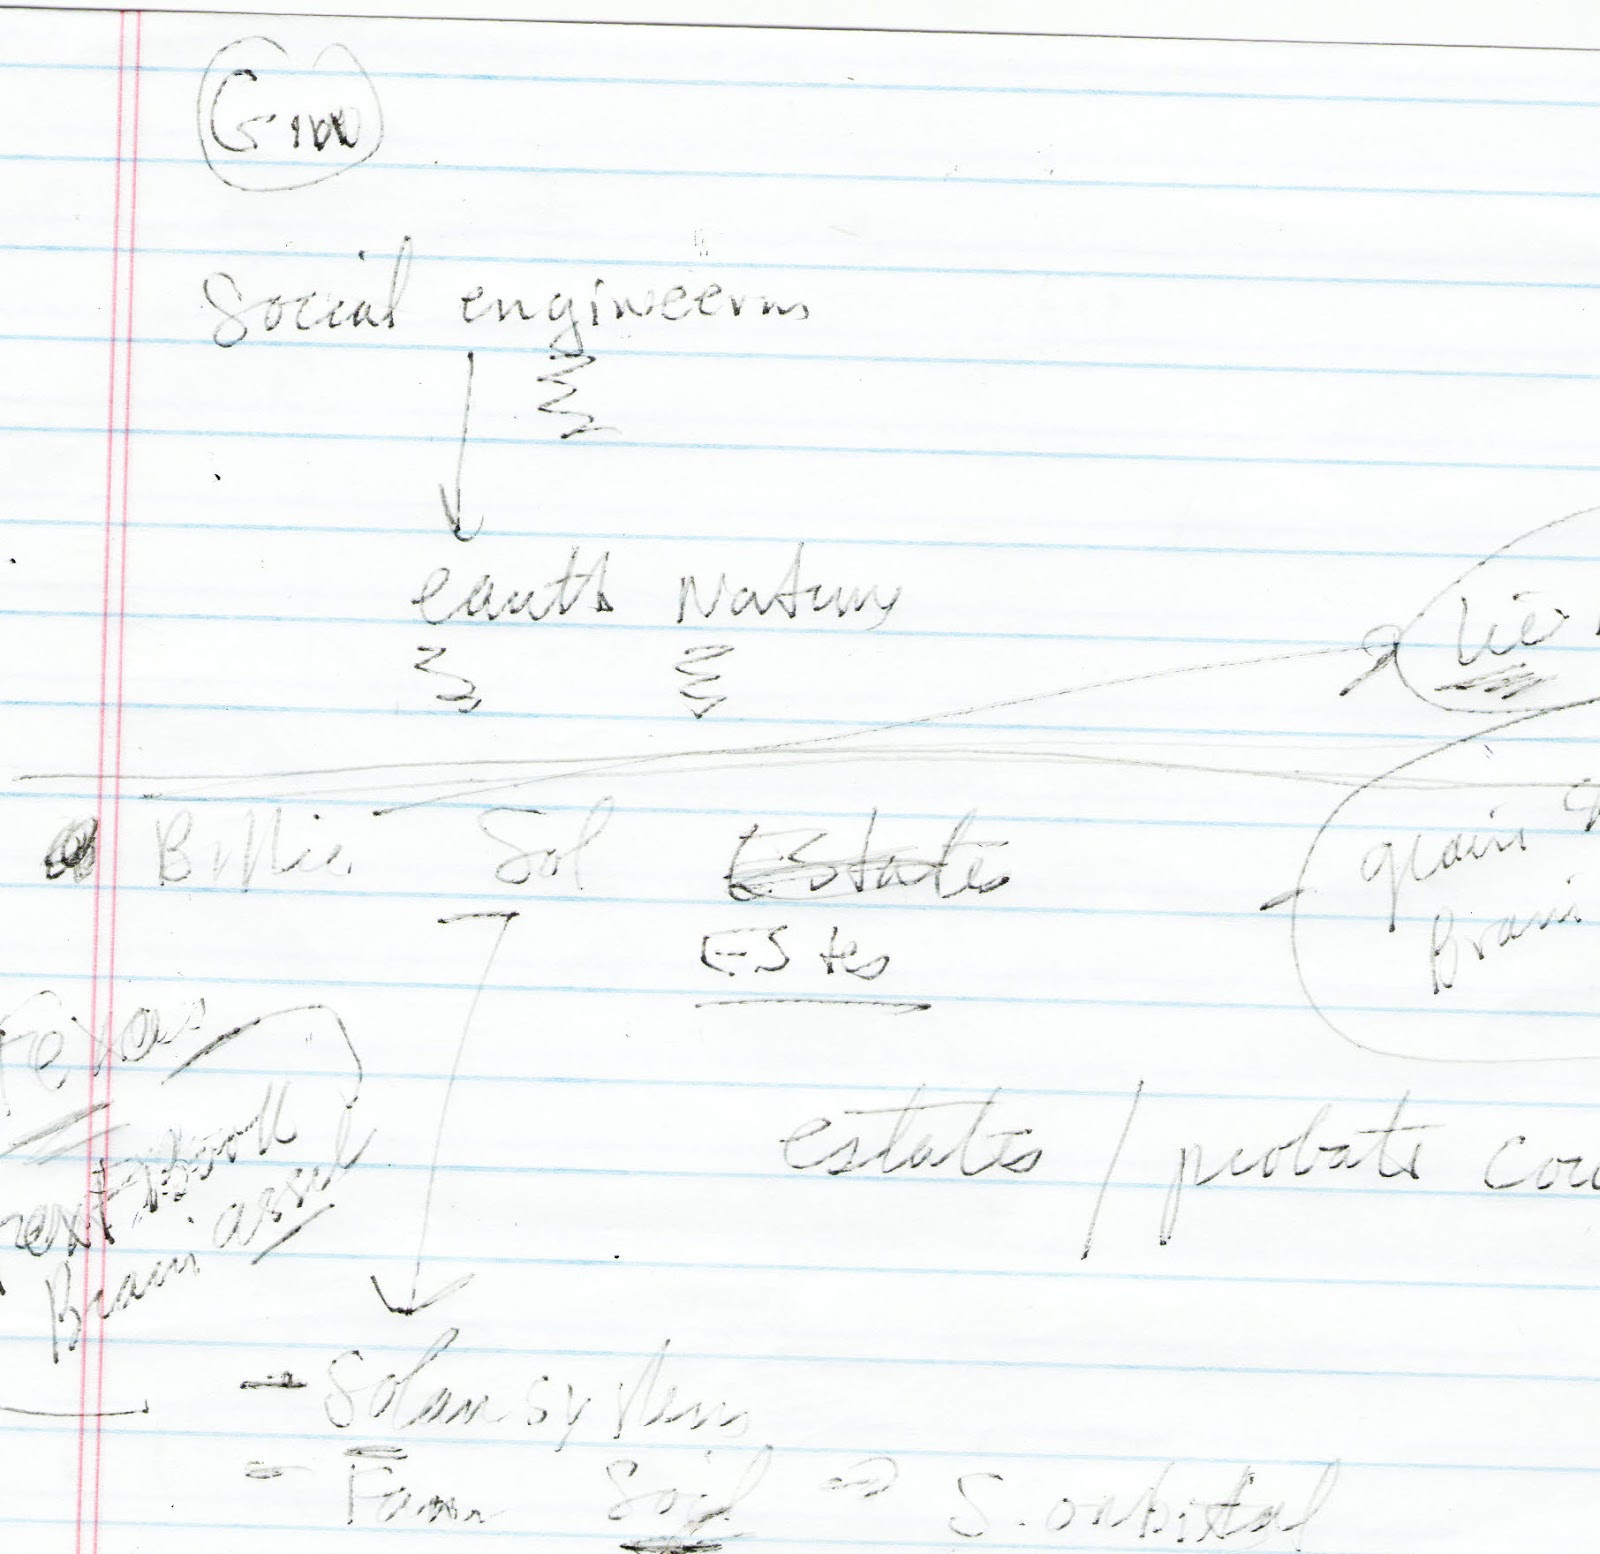 Social engineering
earth Nature
Lie
Billie Sol Estates
Estes
grain
Brain
Texas
Text Book
Brain
estates / probate cou
- Solar system
- Farm Soil → S. orbital